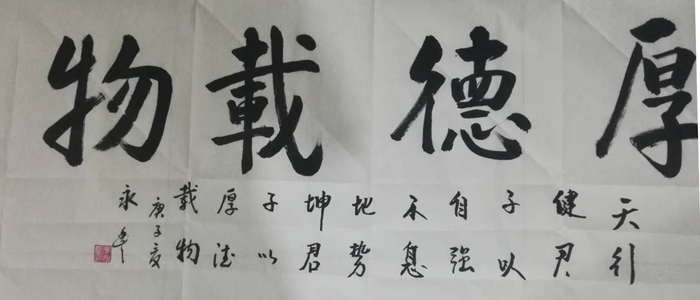 厚德載物
天行
健君
子以
自强
不息
地势
坤君
子以
厚德
载物
庚子夏
永